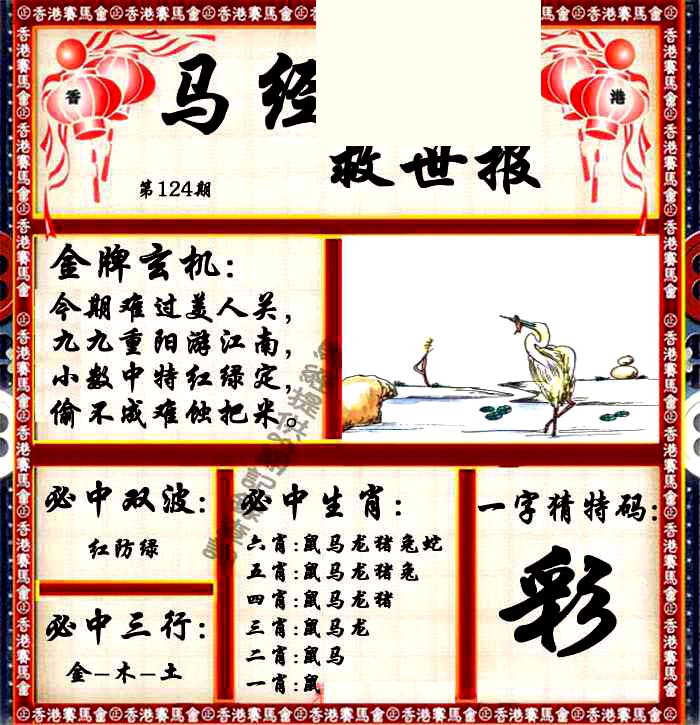 马经
救世报
香
港
第124期
金牌玄机：
今期难过美人关，
九九重阳游江南，
小数中特红绿定，
偷不成难蚀把米。
必中双波：
红防绿
必中三行：
金－木－土
必中生肖：
六肖：鼠马龙猪兔蛇
五肖：鼠马龙猪兔
四肖：鼠马龙猪
三肖：鼠马龙
二肖：鼠马
一肖：鼠
一字猜特码：
彩
香港賽馬會